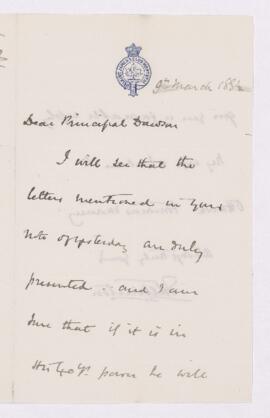 9th March 188
Dear Principal Dawson
I will see that the
letters mentioned in your
note of yesterday are duly
presented and I am
sure that if it is in
His Ex'cys. power he will